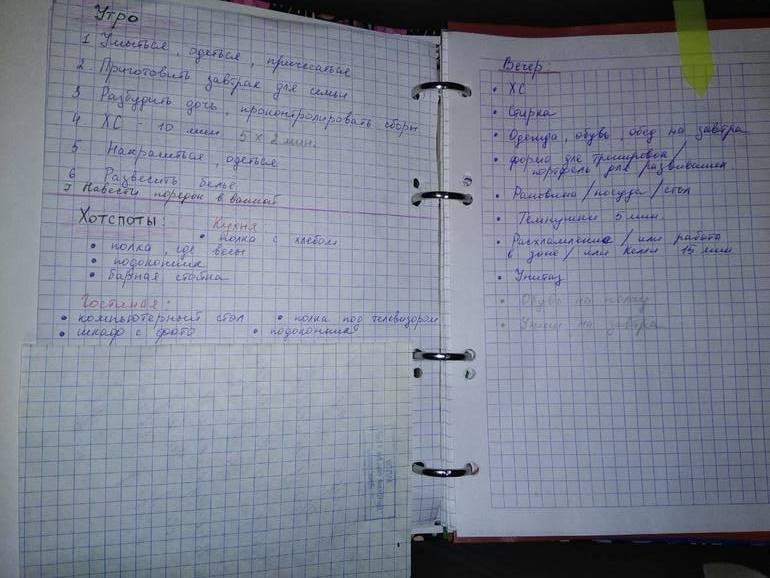 Утро
1 Умыться, одеться, причесаться
2 Приготовить завтрак для семьи
3 Разбудить дочь, проконтролировать сборы
4 ХС 10 мин 5 х 2 мин.
5 Накраситься, одеться
6 Развесить белье
7 Навести порядок в ванной
Хотспоты: Кухня
• полка с хлебом
• полка, где весы
• подоконник
• барная стойка
Гостиная:
• компьютерный стол • полка под телевизором
• шкаф с фото • подоконник
Вечер:
• ХС
• Стирка
• Одежда, обувь, обед на завтра
• форма для тренировок /
портфель для развивашек
• Раковина / посуда / стол
• 5 мин
• Расхламление / или работа
в зоне / или 15 мин
• Унитаз
• Обувь на полку
• на завтра